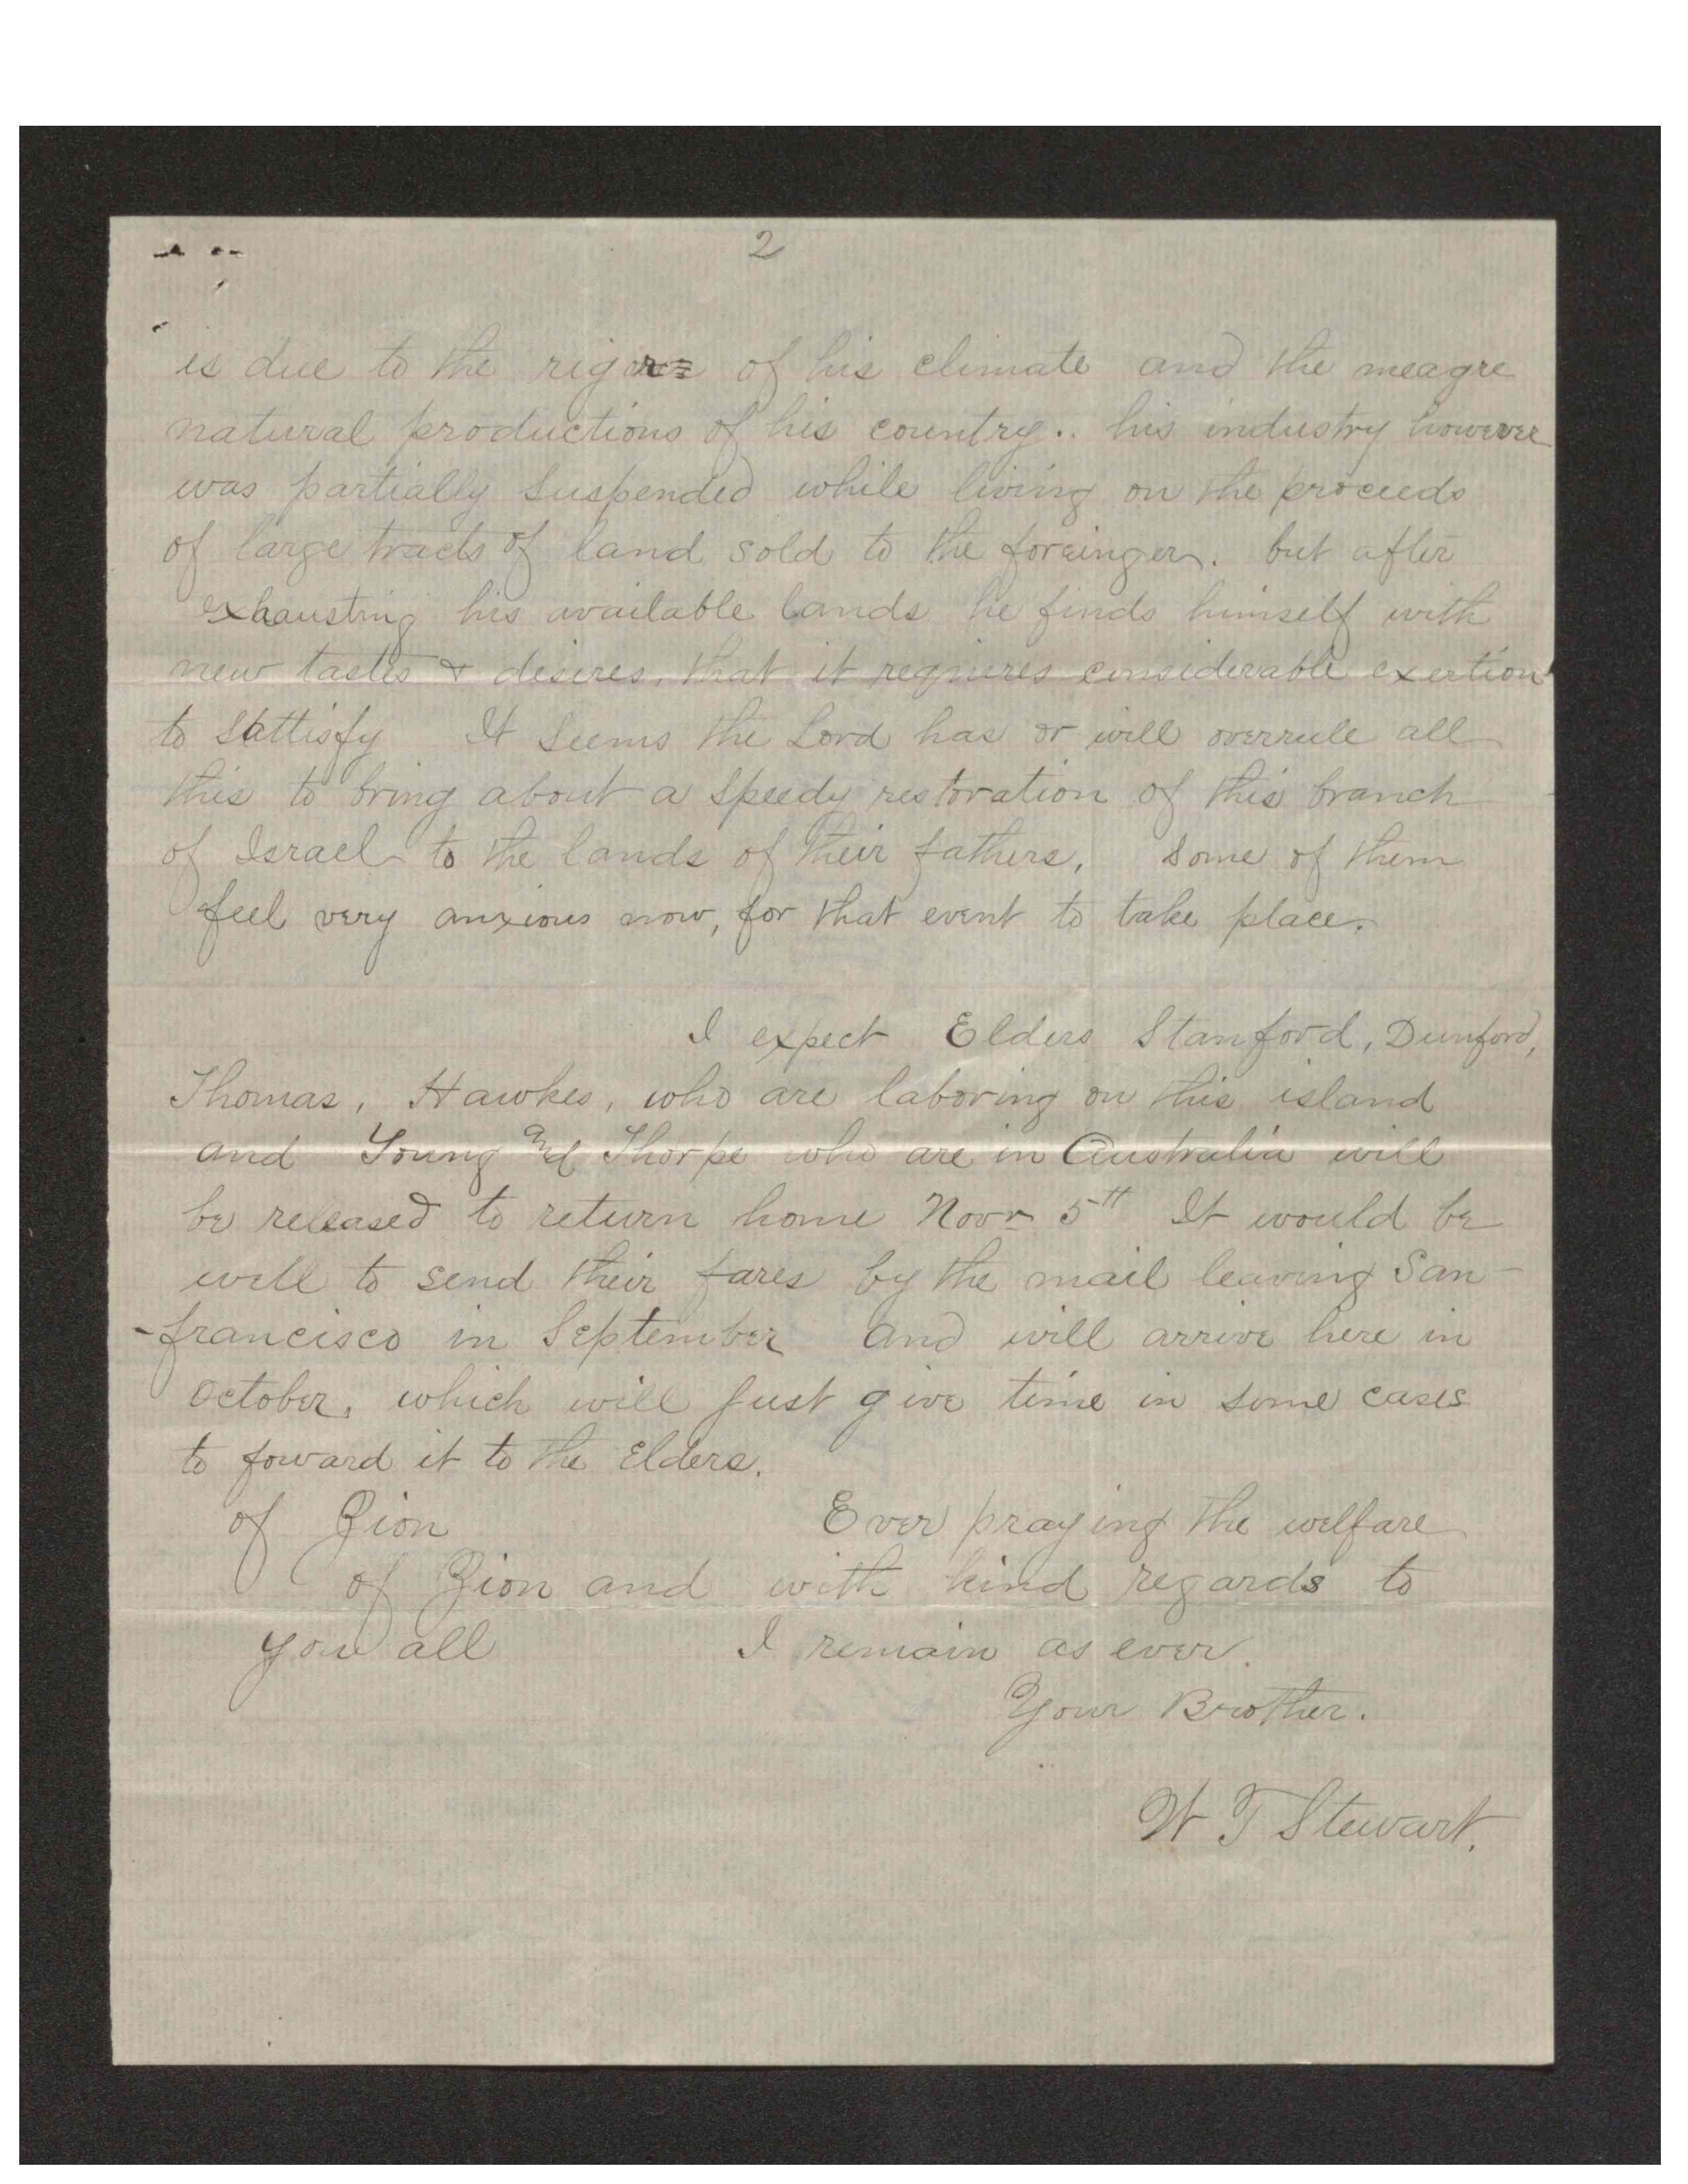 2
is due to the rigors of his climate and the meagre
natural productions of his country.. his industry however
was partially suspended while living on the proceeds
of large tracts of land sold to the foreinger. but after
exhausting his available lands he finds himself with
new tastes & desires, that it requieres considerable exertion
to sattisfy It seems the Lord has or will overrule all
this to bring about a speedy restoration of this branch
of Israel to the lands of their fathers, some of them
feel very anxious now, for that event to take place.
I expect Elders Stanford, Dunford,
Thomas, Hawkes, who are laboring on this island
and Young and Thorpe who are in Australia will
be released to return home Novr 5th It would be
well to send their fares by the mail leaving San
-francisco in September and will arrive here in
october, which will just give time in some cases
to foward it to the Elders.
of Zion Ever praying the welfare
of Zion and with kind regards to
you all I remain as ever.
Your Brother.
W T Stewart.